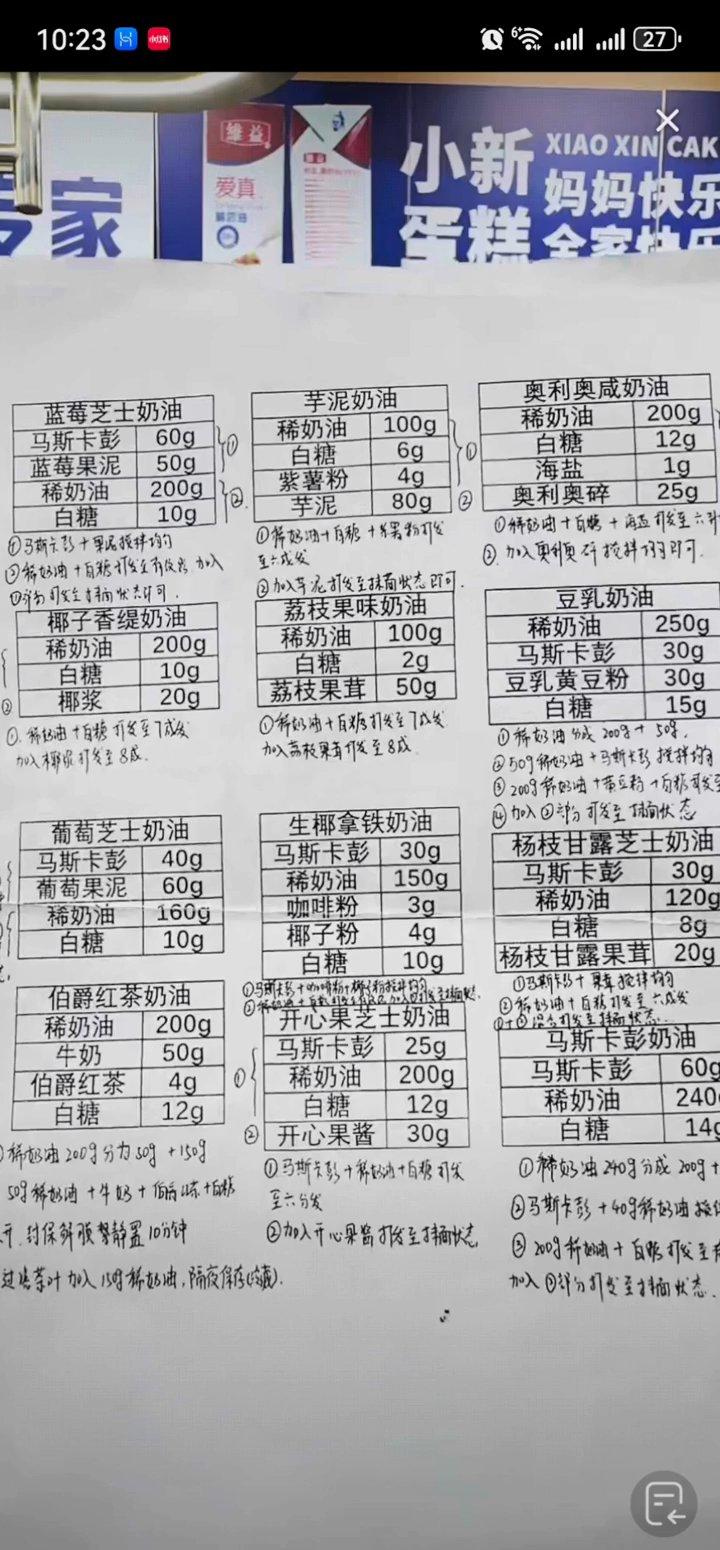 10:23
27
专家
维益
爱真
小新
蛋糕
XIAO XIN CAK
妈妈快乐
全家快乐
蓝莓芝士奶油
马斯卡彭 60g
蓝莓果泥 50g
①
稀奶油 200g
白糖 10g
②
①马斯卡彭+果泥搅拌均匀
②稀奶油+白糖打发至有纹路 加入
①部分打发至抹面状态即可.
芋泥奶油
稀奶油 100g
白糖 6g
紫薯粉 4g
①
芋泥 80g
①稀奶油+白糖+紫薯粉打发
至六成发
②加入芋泥打发至抹面状态即可.
奥利奥咸奶油
稀奶油 200g
白糖 12g
海盐 1g
②
奥利奥碎 25g
①稀奶油+白糖+海盐打发至六
②.加入奥利奥碎搅拌均匀即可.
椰子香缇奶油
稀奶油 200g
白糖 10g
②
椰浆 20g
①.稀奶油+白糖打发至7成发
加入椰浆打发至8成.
荔枝果味奶油
稀奶油 100g
白糖 2g
荔枝果茸 50g
①稀奶油+白糖打发至7成发
加入荔枝果茸打发至8成.
豆乳奶油
稀奶油 250g
马斯卡彭 30g
豆乳黄豆粉 30g
白糖 15g
①稀奶油分成200g+50g.
②50g稀奶油+马斯卡彭搅拌均匀
③200g稀奶油+黄豆粉+白糖打发至
④加入②部分打发至抹面状态
葡萄芝士奶油
马斯卡彭 40g
葡萄果泥 60g
稀奶油 160g
白糖 10g
生椰拿铁奶油
马斯卡彭 30g
稀奶油 150g
咖啡粉 3g
椰子粉 4g
白糖 10g
①马斯卡彭+咖啡粉+椰子粉搅拌均匀
②稀奶油+白糖打发至有纹路加入①打发至抹面状态.
杨枝甘露芝士奶油
马斯卡彭 30g
稀奶油 120g
白糖 8g
杨枝甘露果茸 20g
①马斯卡彭+果茸搅拌均匀
②稀奶油+白糖打发至六成发
①+②混合打发至抹面状态.
伯爵红茶奶油
稀奶油 200g
牛奶 50g
伯爵红茶 4g
白糖 12g
稀奶油200g分为50g+150g
50g稀奶油+牛奶+伯爵红茶+白糖
开.封保鲜膜静置10分钟
过滤茶叶加入150g稀奶油,隔夜保存(冷藏).
开心果芝士奶油
马斯卡彭 25g
稀奶油 200g
①
白糖 12g
②
开心果酱 30g
①马斯卡彭+稀奶油+白糖打发
至六分发
②加入开心果酱打发至抹面状态
马斯卡彭奶油
马斯卡彭 60g
稀奶油 240
白糖 14g
①稀奶油240g分成200g+
②马斯卡彭+40g稀奶油搅拌
③200g稀奶油+白糖打发至有
加入②部分打发至抹面状态.